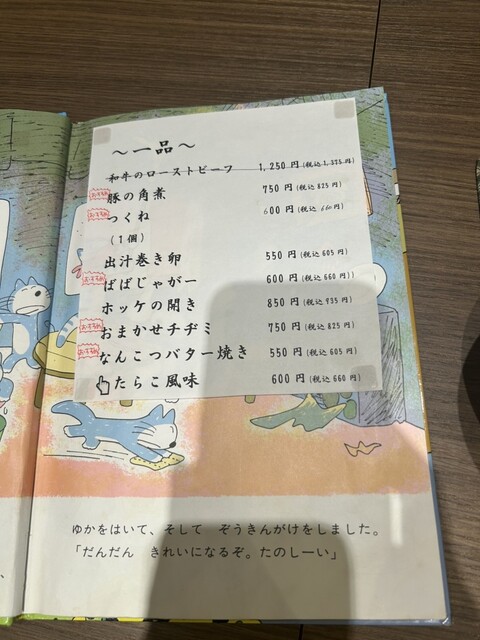 ～一品～
和牛のローストビーフ 1,250円(税込1,375円)
おすすめ 豚の角煮 750円(税込825円)
おすすめ つくね 600円(税込660円)
(1個)
出汁巻き卵 550円(税込605円)
おすすめ ばばじゃがー 600円(税込660円)
ホッケの開き 850円(税込935円)
おすすめ おまかせチヂミ 750円(税込825円)
おすすめ なんこつバター焼き 550円(税込605円)
たらこ風味 600円(税込660円)
ゆかをはいて、そして ぞうきんがけをしました。
「だんだん きれいになるぞ。たのしーい」